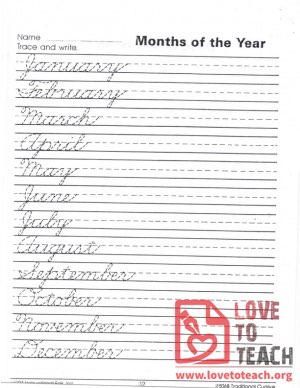 Name
Months of the Year
Trace and write.
January
February
March
April
May
June
July
August
September
October
November
December
LOVE
TO
TEACH
www.lovetoteach.org
Traditional Cursive